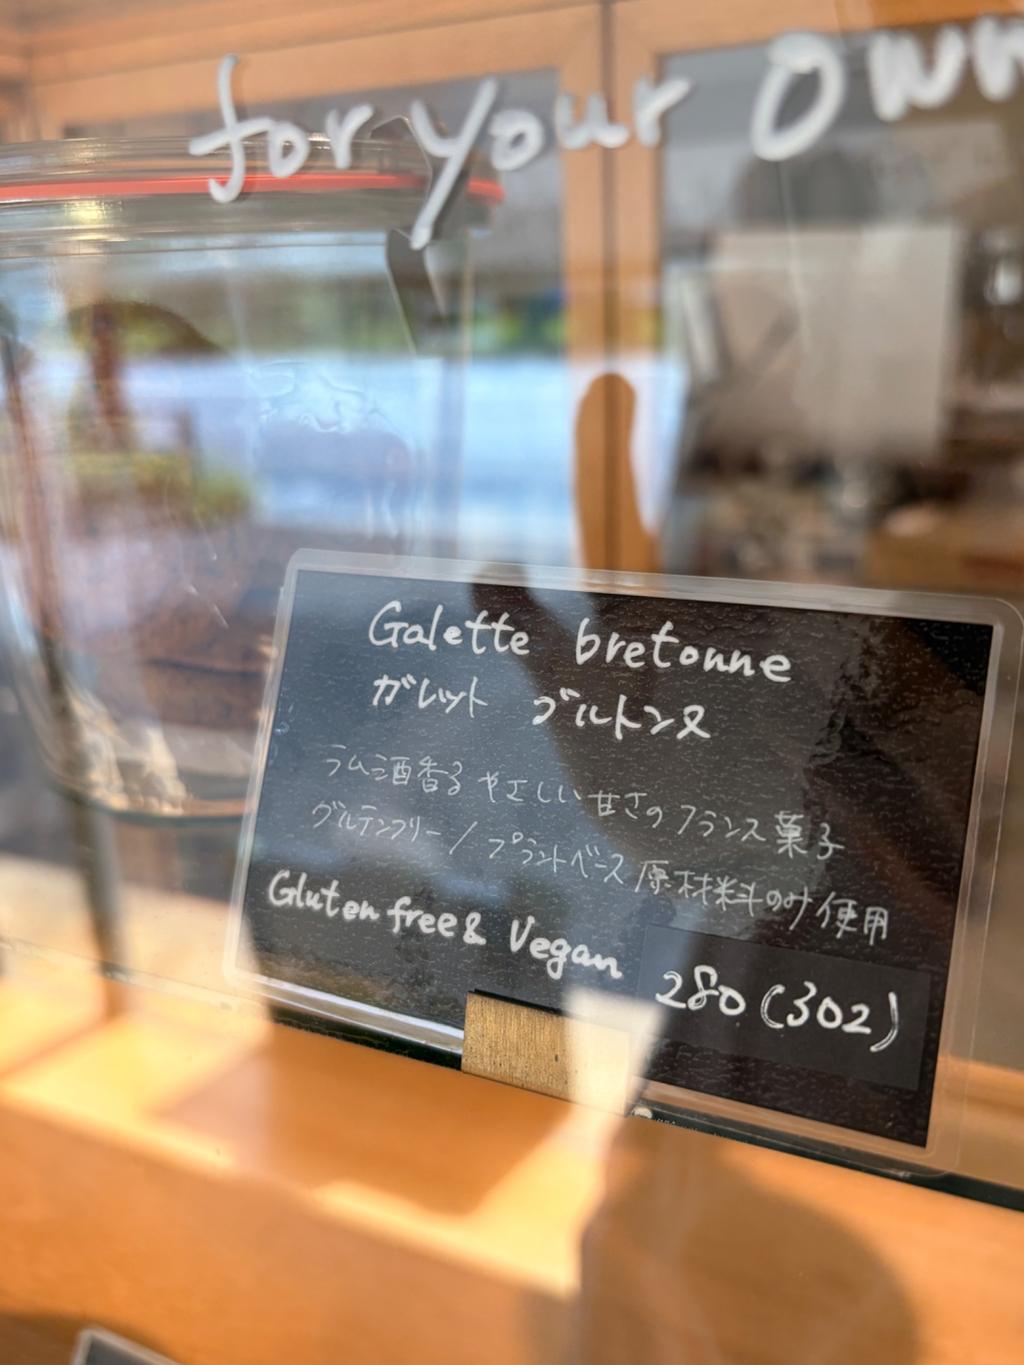 for your own
Galette bretonne
ガレット ブルトンヌ
ラム酒香る やさしい 甘さの フランス菓子
グルテンフリー / プラントベース原材料のみ使用
Gluten free & Vegan
280 (302)